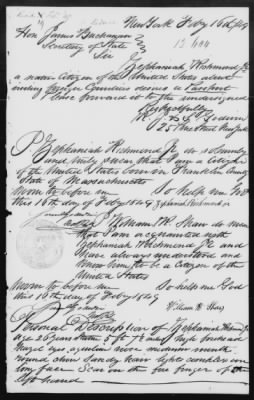 New York Feby 16th 1849
Hon James Buchanan
Secretary of State
Sir
Zephaniah Richmond Jr
a native Citizen of the United States about
visiting foreign Countries desires a Passport
Please forward it to the undersigned
Respectfully
25 New York
I Zephaniah Richmond Jr do solemnly
and truly swear that I am a Citizen
of the United States born in Franklin County
State of Massachusetts
So help me God
Sworn to before me
this 16th day of Feby 1849 Zephaniah Richmond Jr
I William W. Shaw do swear
that I am acquainted with
Zephaniah Richmond Jr and
have always understood and
know him to be a Citizen of the
United States
So help me God
Sworn to before me
this 16th day of Feby 1849
William W Shaw
Personal Description of Zephaniah Richmond Jr
age 26 years stature 5 ft high forehead
hazel eyes, aquiline nose medium mouth
round chin sandy hair light complexion
long face Scar on the fore finger of the
left hand